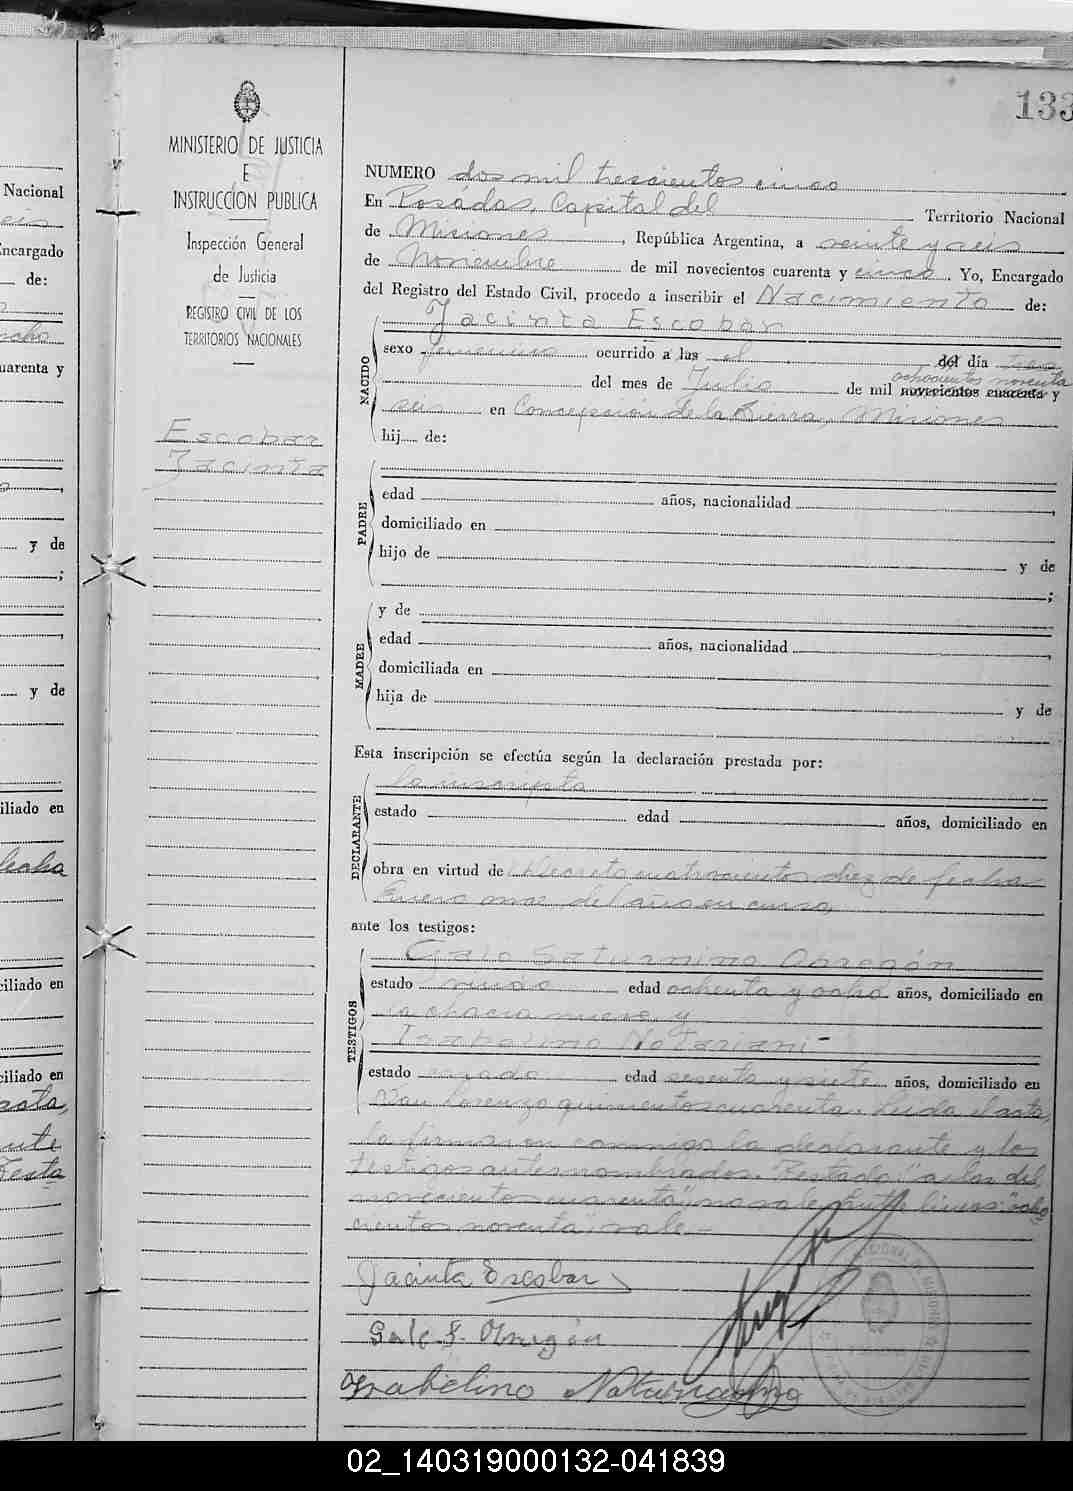 133
MINISTERIO DE JUSTICIA
E
INSTRUCCION PUBLICA
Inspección General
de Justicia
REGISTRO CIVIL DE LOS
TERRITORIOS NACIONALES
Escobar
Jacinta
NUMERO dos mil trescientos cinco
En Posadas, Capital del Territorio Nacional
de Misiones, República Argentina, a veinte y seis
de Noviembre de mil novecientos cuarenta y cinco. Yo, Encargado
del Registro del Estado Civil, procedo a inscribir el Nacimiento de:
Jacinta Escobar
NACIDO
sexo femenino ocurrido a las el del día tres
ochocientos noventa
del mes de Julio de mil novecientos cuarenta y
seis en Concepción de la Sierra, Misiones
hij de:
PADRE
edad años, nacionalidad ,
domiciliado en
hijo de y de
;
MADRE
y de
edad años, nacionalidad ,
domiciliada en
hija de y de
Esta inscripción se efectúa según la declaración prestada por:
DECLARANTE
la inscripta
estado edad años, domiciliado en
obra en virtud de Decreto cuatrocientos diez de fecha
Enero once del año en curso,
ante los testigos:
TESTIGOS
Galo Saturnino Obregón
estado viudo edad ochenta y ocho años, domiciliado en
la chacra nueve y
Isabelino Notariani -
estado casado edad sesenta y siete años, domiciliado en
San Lorenzo quinientos cuarenta. Leida el acta,
la firmaron conmigo la declarante y los
testigos antes nombrados. Testado: "a las del
novecientos cuarenta", no vale. Entre lineas: "ocho
cientos noventa", vale -
Jacinta Escobar
Galo S. Obregón
Isabelino
Nacional
seis
Encargado
de:
ocho
cuarenta y
y de
;
y de
domiciliado en
fecha
domiciliado en
domiciliado en
02_140319000132-041839